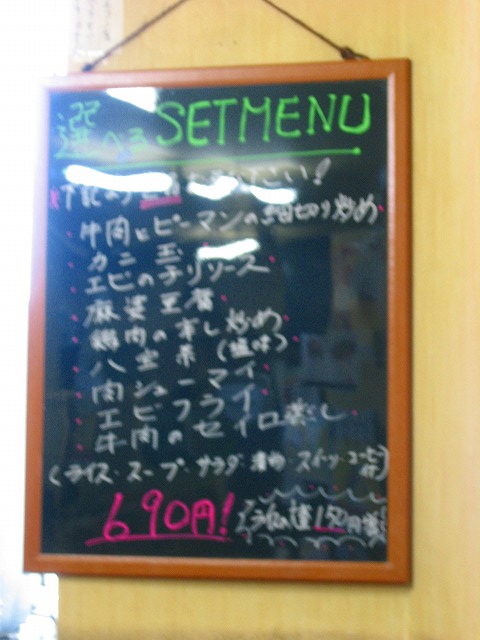 選べるSETMENU
下記の
・牛肉とピーマンの細切り炒め
・カニ玉
・エビのチリソース
・麻婆豆腐
・鶏肉の辛し炒め
・八宝菜(塩味)
・肉シューマイ
・エビフライ
・牛肉のセイロ蒸し
(ライス・スープ・サラダ・漬物・スイーツ・コーヒー付)
690円!
150円